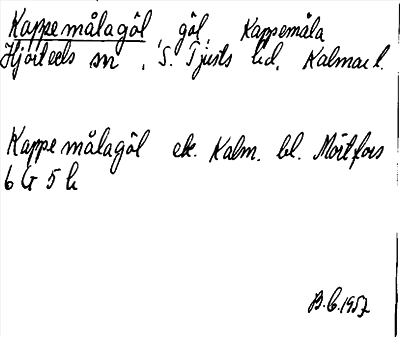 Kappemålagöl, göl, Kappemåla
Hjorteds sn, S. Tjusts hd, Kalmar l.
Kappemålagöl ek. Kalm. bl. Mörtfors
6 G 5 h
B.C. 1957